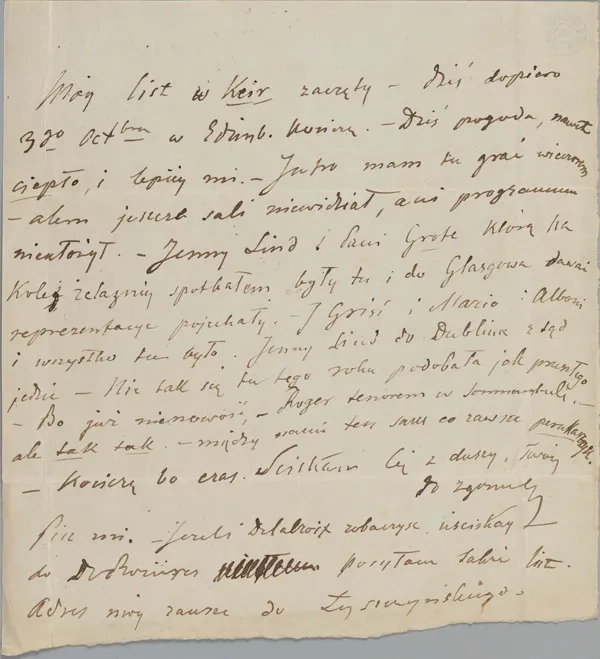 Mój list w Keir zaczęty – dziś dopiero
3go Octbra w Edinb. kończę. – Dziś pogoda, nawet
ciepło, i lepiej mi. – Jutro mam tu grać wieczorem
– alem jeszcze sali niewidział, ani programmu
nieułożył. – Jenny Lind i Pani Grote którą na
Kolei żelaznej spotkałem były tu i do Glasgowa dawać
reprezentacje pojechały. – I Grisi i Mario i Alboni
i wszystko tu było. Jenny Lind do Dublina z tąd
jedzie – Nie tak się tu tego roku podobała jak przeszłego
– Bo już nienowość, – Roger tenorem w Somnambuli, –
ale tak tak. – między nami ten sam co zawsze
– Kończę bo czas. Ściskam Cię z duszy. Twój
do zgonu
Pisz mi. – Jeżeli Delacroix zobaczysz uściskaj
do posyłam Sobie list.
Adres mój zawsze do Łyszczyńskiego.